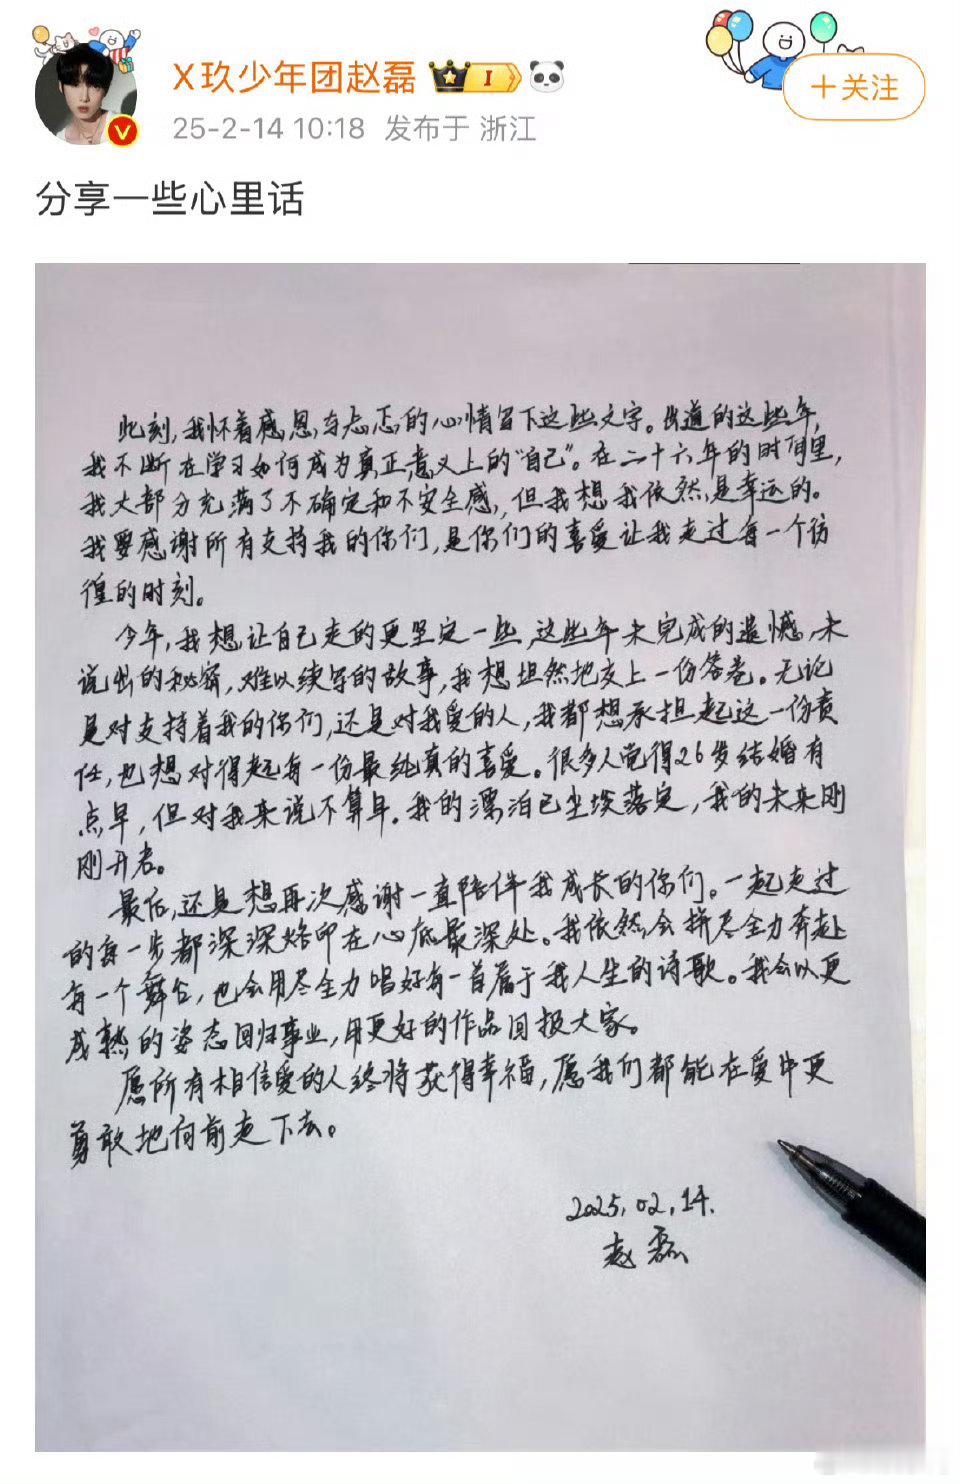 X玖少年团赵磊
I
+关注
25-2-14 10:18 发布于 浙江
分享一些心里话
此刻,我怀着感恩与忐忑的心情留下这些文字。出道的这些年,
我不断在学习如何成为真正意义上的"自己"。在二十六年的时间里,
我大部分充满了不确定和不安全感,但我想我依然是幸运的。
我要感谢所有支持我的你们,是你们的喜爱让我走过每一个彷
徨的时刻。
今年,我想让自己走的更坚定一些,这些年未完成的遗憾,未
说出的秘密,难以续写的故事,我想坦然地交上一份答卷。无论
是对支持着我的你们,还是对我爱的人,我都想承担起这一份责
任,也想对得起每一份最纯真的喜爱。很多人觉得26岁结婚有
点早,但对我来说不算早。我的漂泊已尘埃落定,我的未来刚
刚开始。
最后,还是想再次感谢一直陪伴我成长的你们。一起走过
的每一步都深深烙印在心底最深处。我依然会拼尽全力奔赴
每一个舞台,也会用尽全力唱好每一首属于我人生的诗歌。我会以更
成熟的姿态回归事业,用更好的作品回报大家。
愿所有相信爱的人终将获得幸福,愿我们都能在爱中更
勇敢地向前走下去。
2025.02.14.
赵磊